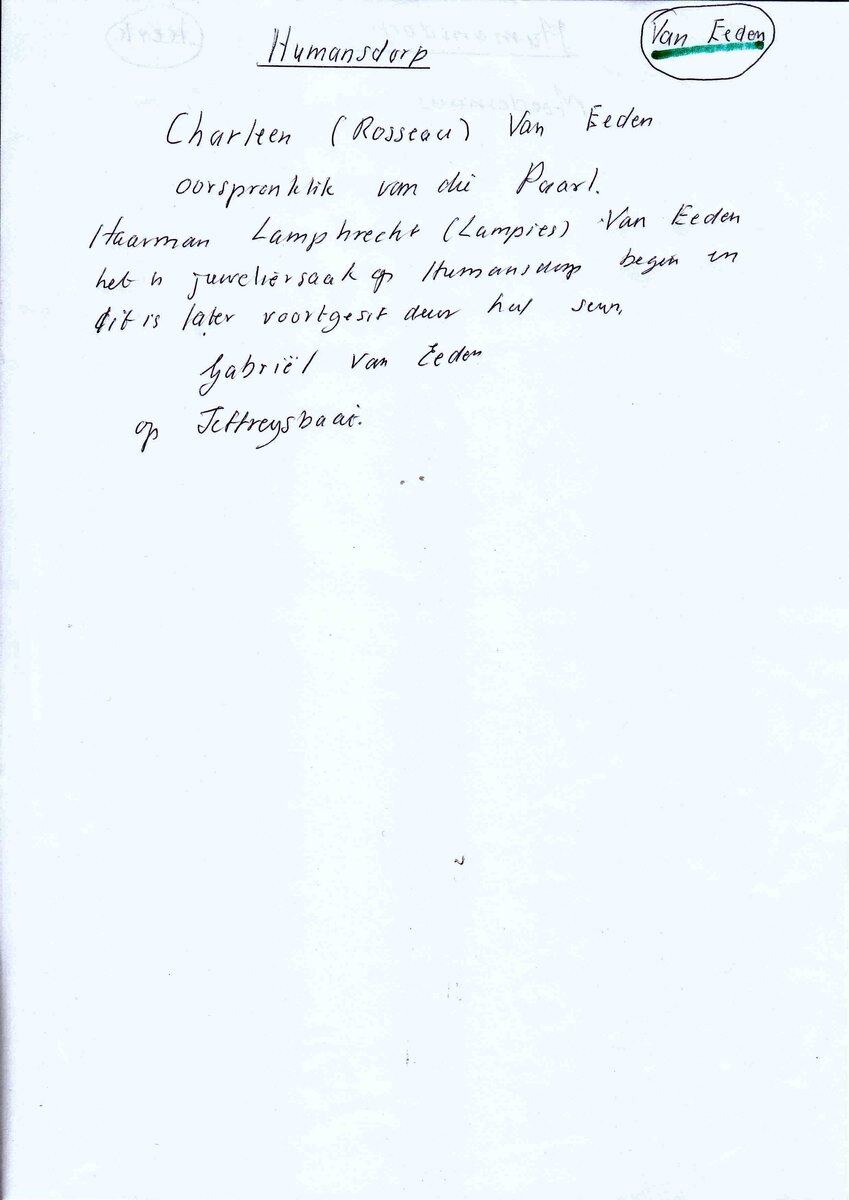 Humansdorp
Van Eeden
Charleen (Rosseau) Van Eeden
oorspronklik van die Paarl.
Haarman Lamphrecht (Lampies) Van Eeden
het 'n juweliersaak op Humansdorp begin en
dit is later voortgesit deur hul seun,
Gabriël Van Eeden
op Jeffreysbaai.